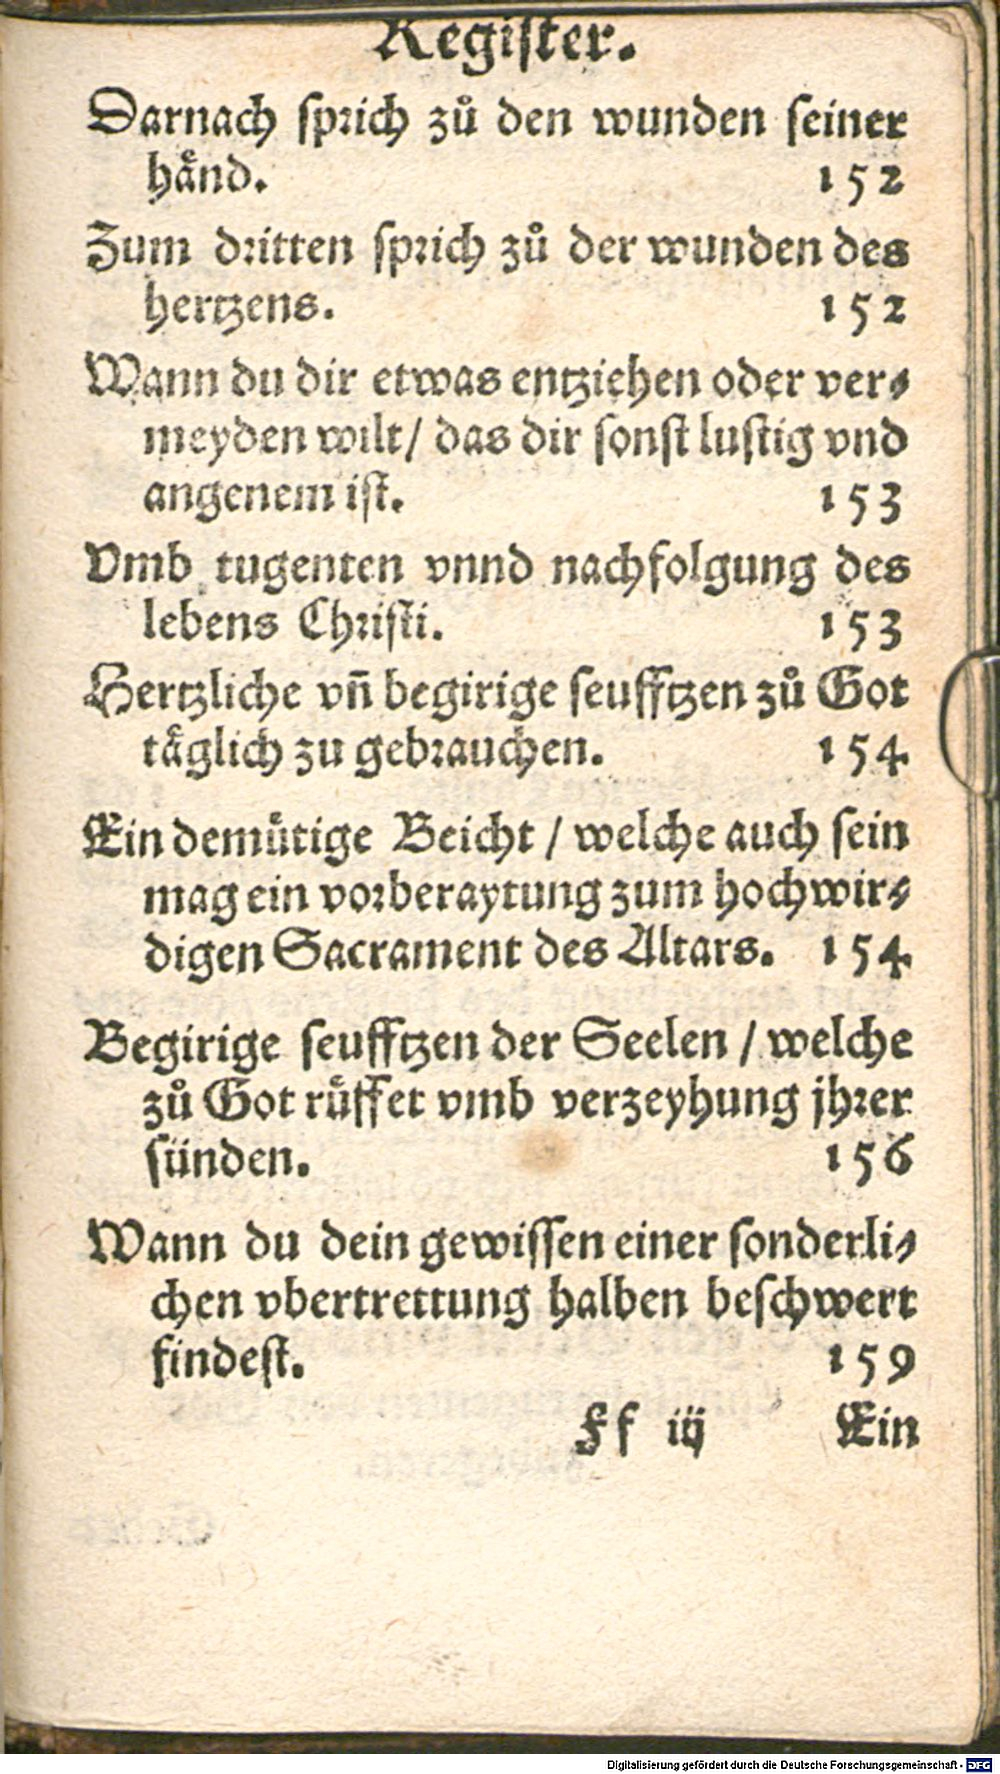 Register.
Darnach sprich zů den wunden seiner
hånd. 152
Zum dritten sprich zů der wunden des
hertzens. 152
Wann du dir etwas entziehen oder ver⸗
meyden wilt/ das dir sonst lustig vnd
angenem ist. 153
Vmb tugenten vnnd nachfolgung des
lebens Christi. 153
Hertzliche vñ begirige seufftzen zů Got
tåglich zu gebrauchen. 154
Ein demůtige Beicht / welche auch sein
mag ein vorberaytung zum hochwir⸗
digen Sacrament des Altars. 154
Begirige seufftzen der Seelen / welche
zů Got růffet vmb verzeyhung jhrer
sünden. 156
Wann du dein gewissen einer sonderli⸗
chen vbertrettung halben beschwert
findest. 159
Ff iij Ein
Digitalisierung gefördert durch die Deutsche Forschungsgemeinschaft - DFG